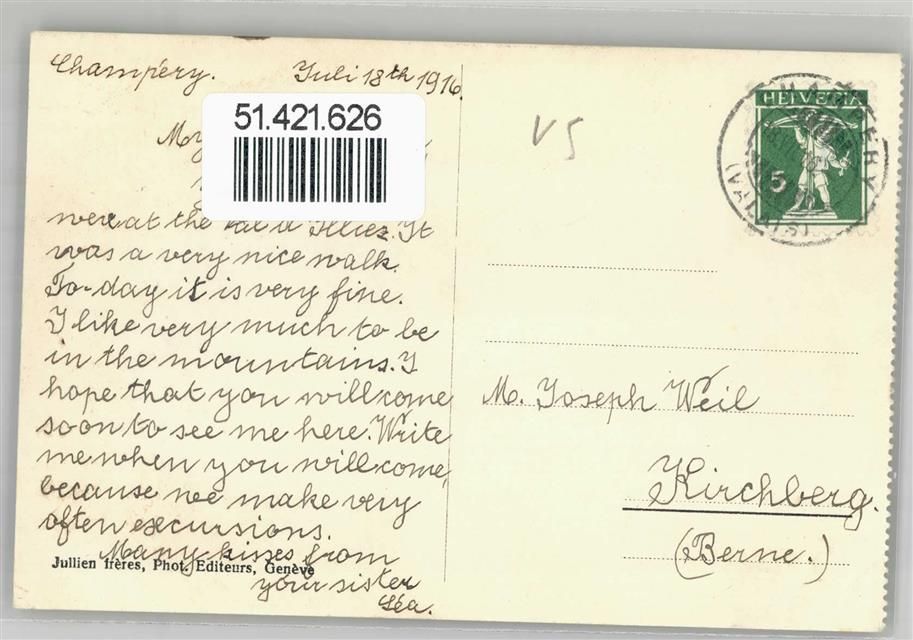 Champéry. Juli 18th 1916.
51.421.626
My
were at the Val d'Illiez. It
was a very nice walk.
To-day it is very fine.
I like very much to be
in the mountains. I
hope that you will come
soon to see me here. Write
me when you will come,
because we make very
often excursions.
Many kisses from
your sister
Léa.
Jullien frères, Phot. Editeurs, Genève
VS
HELVETIA
5
CHAMPÉRY
(VALAIS)
M. Joseph Weil
Kirchberg.
(Berne.)